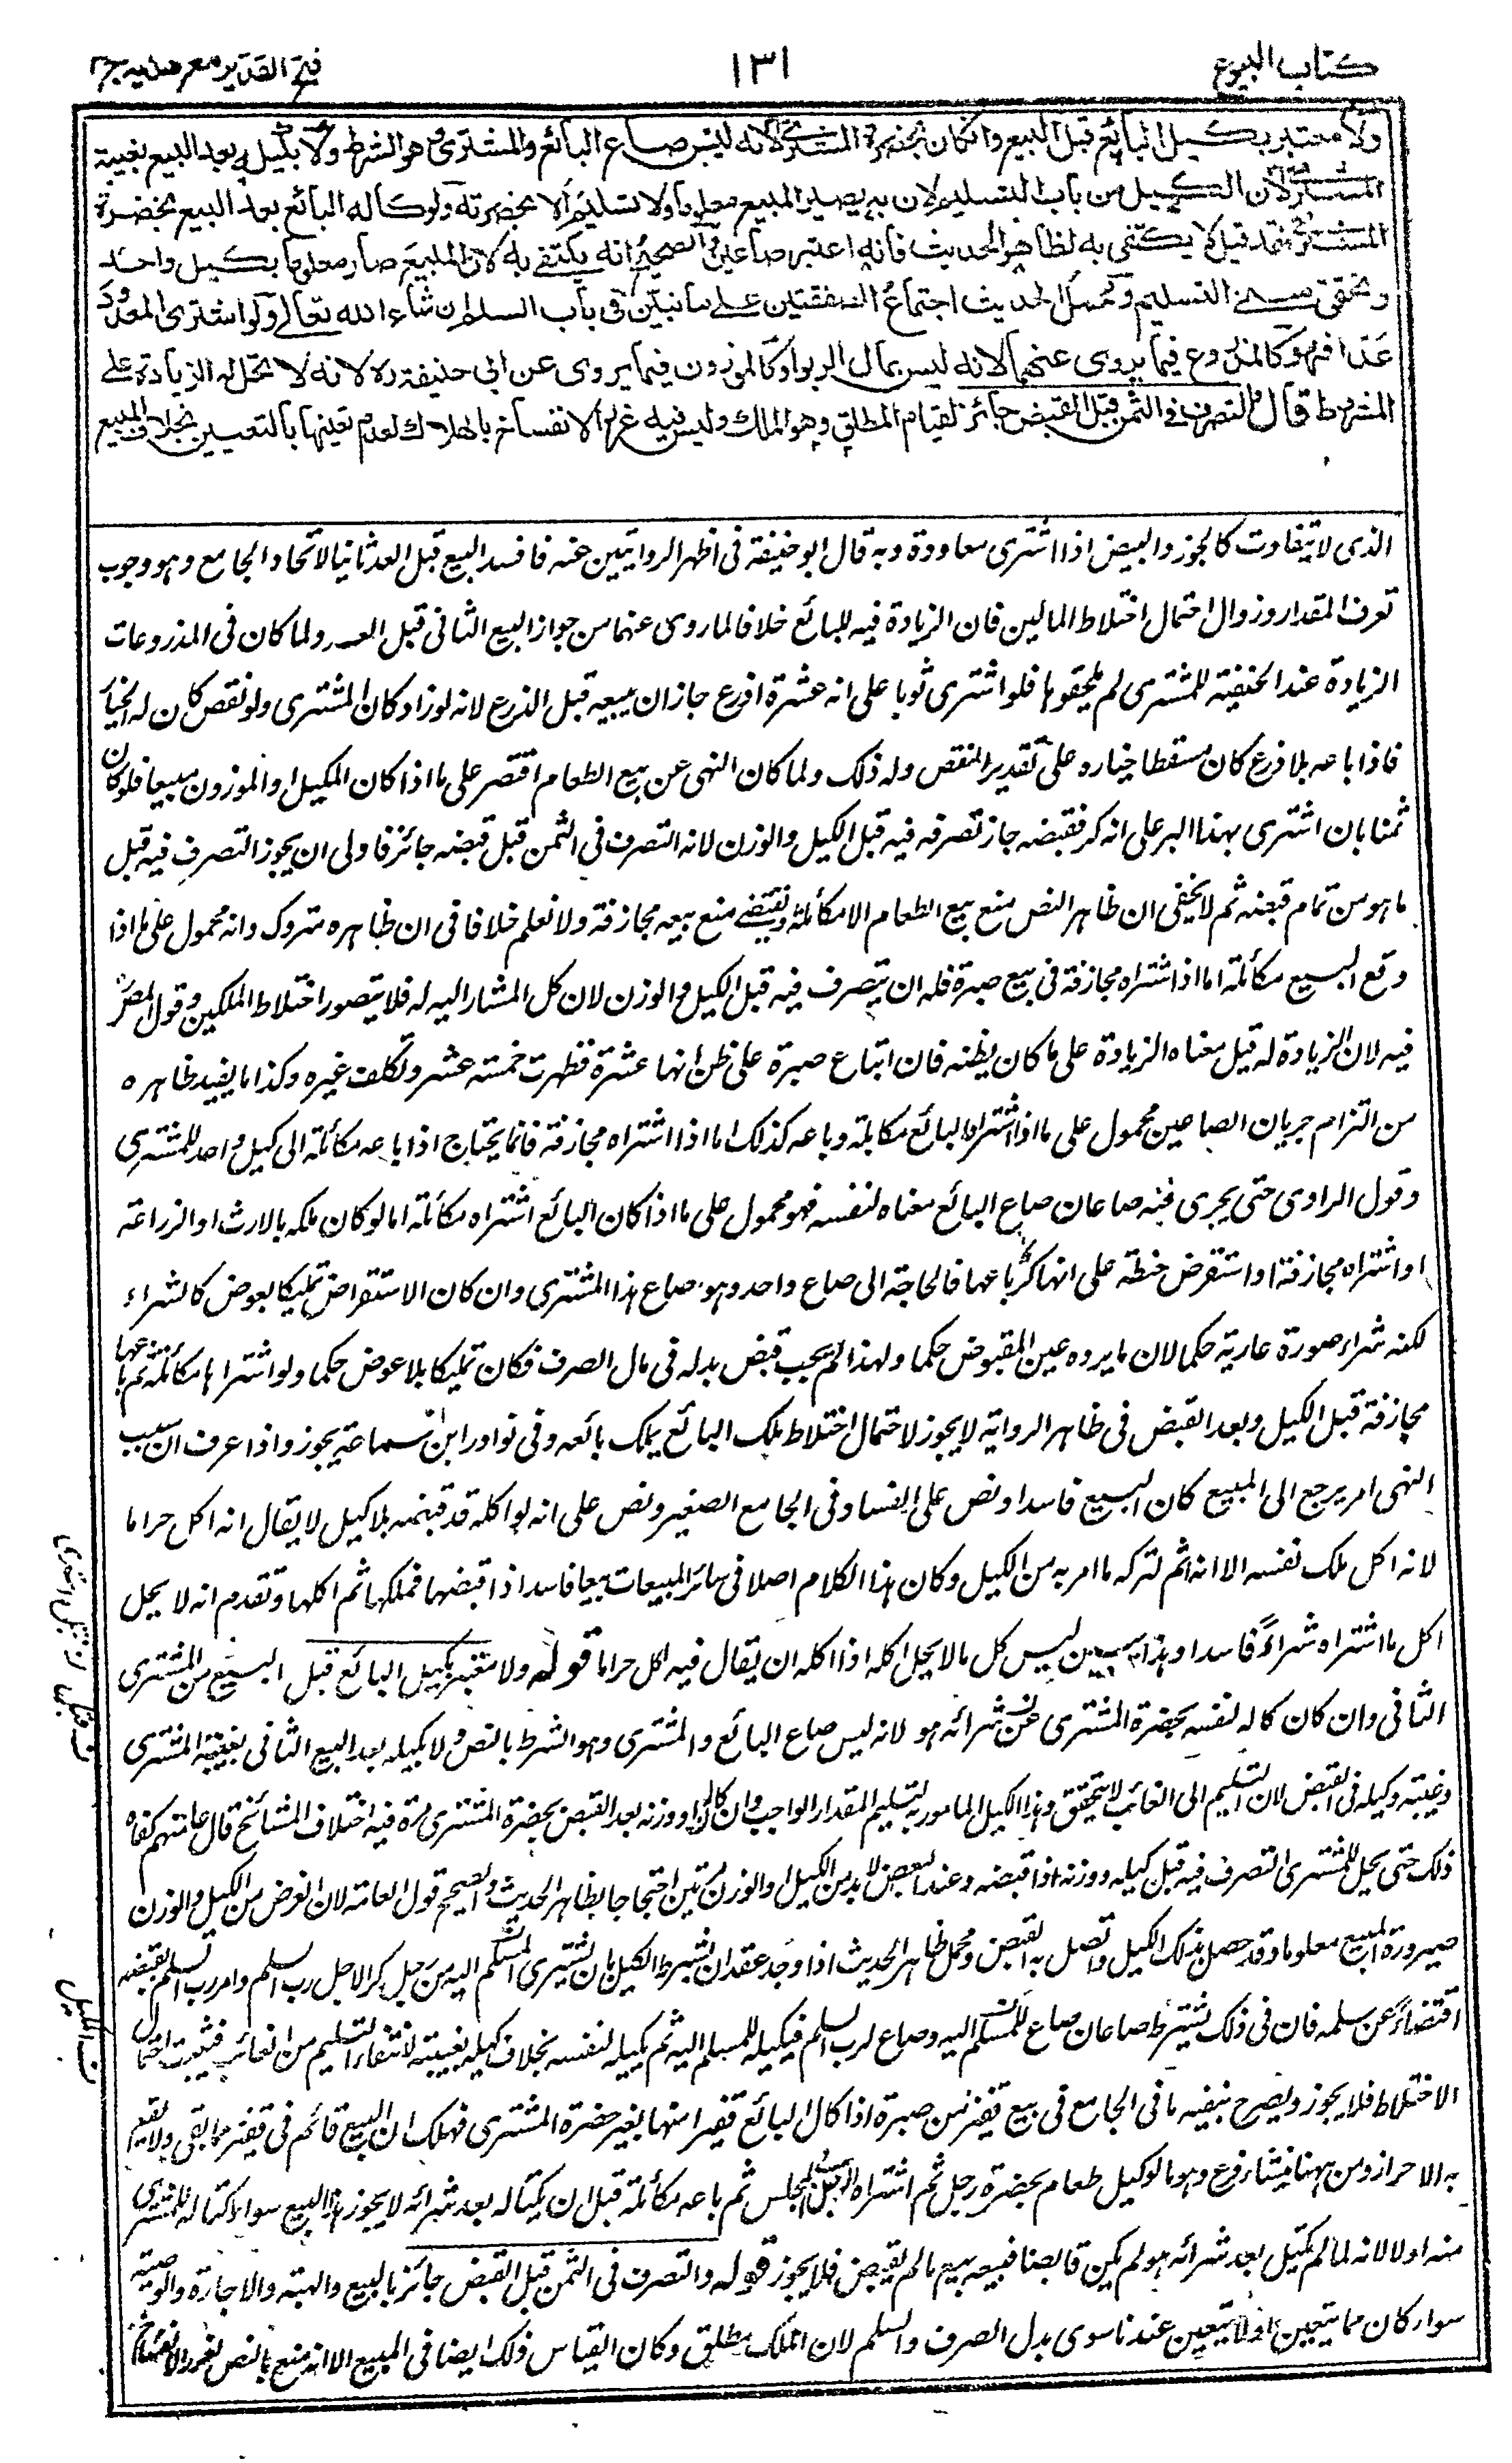 كتاب البيوع
١٣١
فتح القدير مع هدايه ج٣
ولا معتبر بكيل البائع قبل البيع وان كان بحضرة المشتري لانه ليس صاع البائع والمشتري وهو الشرط ولا بكيله بعد البيع بغيبة
المشتري لان الكيل من باب التسليم لان به يصير المبيع معلوما ولا تسليم الا بحضرته ولو كاله البائع بعد البيع بحضرة
المشتري فقد قيل لا يكتفى به لظاهر الحديث فانه اعتبر صاعين والصحيح انه يكتفى به لان المبيع صار معلوما بكيل واحد
وتحقق معنى التسليم ومحمل الحديث اجتماع الصفقتين على ما نبين في باب السلم ان شاء الله تعالى ولو اشترى المعدود
عدا فهو كالمذروع فيما يروى عنهما لانه ليس بمال الربوا وكالموزون فيما يروى عن ابي حنيفة ره لانه لا تحل له الزيادة على
المشروط قال والتصرف في الثمن قبل القبض جائز لقيام المطلق وهو الملك وليس فيه غرر الانفساخ بالهلاك لعدم تعينها بالتعيين بخلاف المبيع
الذى لا يتفاوت كالجوز والبيض اذا اشترى معاودة وبه قال ابو حنيفة فى اظهر الروايتين عنه فافسد البيع قبل العد ثانيا لاتحاد الجامع وهو وجوب
تعرف المقدار وزوال احتمال اختلاط المالين فان الزيادة فيه للبائع خلافا لما روى عنهما من جواز البيع الثانى قبل العد ولما كان فى المذروعات
الزيادة عند الحنفية للمشترى لم يلحقوها فلو اشترى ثوبا على انه عشرة اذرع جاز ان يبيعه قبل الذرع لانه لو زاد كان للمشترى ولو نقص كان له الخيار
فاذا باعه بلا ذرع كان مسقطا خياره على تقدير النقص وله ذلك ولما كان النهى عن بيع الطعام اقتصر على ما اذا كان المكيل والموزون مبيعا فلو كان
ثمنا بان اشترى بهذا البر على انه كر فقبضه جاز تصرفه فيه قبل الكيل والوزن لانه التصرف فى الثمن قبل قبضه جائز فاولى ان يجوز التصرف فيه قبل
ما هو من تمام قبضه ثم لا يخفى ان ظاهر النص منع بيع الطعام الا مكائلة ويقتضى منع بيعه مجازفة ولا نعلم خلافا فى ان ظاهره متروك وانه محمول على ما اذا
وقع البيع مكائلة اما اذا اشتراه مجازفة فى بيع صبرة فله ان يتصرف فيه قبل الكيل والوزن لان كل المشار اليه له فلا يتصور اختلاط الملكين وقول المصر
فيه لان الزيادة له قيل معناه الزيادة على ما كان يظنه فان ابتاع صبرة على ظن انها عشرة فظهرت خمسة عشر وتكلف غيره وكذا ما يفيد ظاهره
من التزام جريان الصاعين محمول على ما اذا اشتراه البائع مكايلة وباعه كذلك اما اذا اشتراه مجازفة فانما يحتاج اذا باعه مكائلة الى كيل واحد للمشترى
وقول الراوى حتى يجرى فيه صاعان صاع البائع معناه لنفسه فهو محمول على ما اذا كان البائع اشتراه مكائلة اما لو كان ملكه بالارث او الزراعة
او اشتراه مجازفة او استقرض حنطة على انها كر ثم باعها فالحاجة الى صاع واحد وهو صاع هذا المشترى وان كان الاستقراض تمليكا بعوض كالشراء
لكنه شراء صورة عارية حكما لان ما يرده عين المقبوض حكما ولهذا لم يجب قبض بدله فى مال الصرف فكان تمليكا بلا عوض حكما ولو اشتراها مكائلة ثم باعها
مجازفة قبل الكيل وبعد القبض فى ظاهر الرواية لا يجوز لاحتمال اختلاط ملك البائع بملك بائعه وفى نوادر ابن سماعة يجوز واذا عرف ان سبب
النهى امر يرجع الى المبيع كان البيع فاسدا ونص على الفساد فى الجامع الصغير ونص على انه لو اكله قد قبضه بلا كيل لا يقال انه اكل حراما
لانه اكل ملك نفسه الا انه اثم لتركه ما امر به من الكيل وكان هذا الكلام اصلا فى سائر المبيعات بيعا فاسدا اذا قبضها فملكها ثم اكلها وتقدم انه لا يحل
اكل ما اشتراه شراءً فاسدا وهذا يبين ليس كل مالا يحل اكله اذا اكله ان يقال فيه اكل حراما قوله ولا معتبر بكيل البائع قبل البيع من المشترى
الثانى وان كان كاله لنفسه بحضرة المشترى عن شرائه هو لانه ليس صاع البائع والمشترى وهو الشرط بالنص ولا بكيله بعد البيع الثانى بغيبة المشترى
وغيبة وكيله فى القبض لان التسليم الى الغائب لا يتحقق وهذا الكيل المامور به لتسليم المقدار الواجب وان كاله او وزنه بعد القبض بحضرة المشترى مرة فيه اختلاف المشائخ قال عامتهم كفاه
ذلك حتى يحل للمشترى التصرف فيه قبل كيله ووزنه اذا قبضه وعند البعض لا بد من الكيل او الوزن مرتين احتجاجا بظاهر الحديث والصحيح قول العامة لان الغرض من الكيل والوزن
صيرورة المبيع معلوما وقد حصل بذلك الكيل واتصل به القبض ومحمل ظاهر الحديث اذا وجد عقدان بشرط الكيل بان يشترى المسلم اليه من رجل كرا لاجل رب السلم وامر رب السلم بقبضه
اقتضاءً عن سلمه فان فى ذلك يشترط صاعان صاع للمسلم اليه وصاع لرب السلم فيكيله للمسلم اليه ثم يكيله لنفسه بخلاف كيله بغيبته لانتفاء التسليم من الغائب فيثبت احتمال
الاختلاط فلا يجوز ويصرح بنفيه ما فى الجامع فى بيع قفيز من صبرة اذا كال البائع قفيزا منها بغير حضرة المشترى فهلك ان البيع قائم فى قفيز مما بقى ولا يقع
به الاحراز ومن ههنا ينشأ فرع وهو ما لو كيل طعام بحضرة رجل ثم اشتراه فى المجلس ثم باعه مكائلة قبل ان يكتاله بعد شرائه لا يجوز هذا البيع سواء اكتاله للمشترى
منه اولا لانه لما لم يكتل بعد شرائه هو لم يكن قابضا فبيعه بيع ما لم يقبض فلا يجوز قوله والتصرف فى الثمن قبل القبض جائز بالبيع والهبة والاجارة والوصية
سواء كان مما يتعين اولا يتعين عندنا سوى بدل الصرف والسلم لان الملك مطلق وكان القياس ذلك ايضا فى المبيع الا انه منع بالنص لغرر الانفساخ